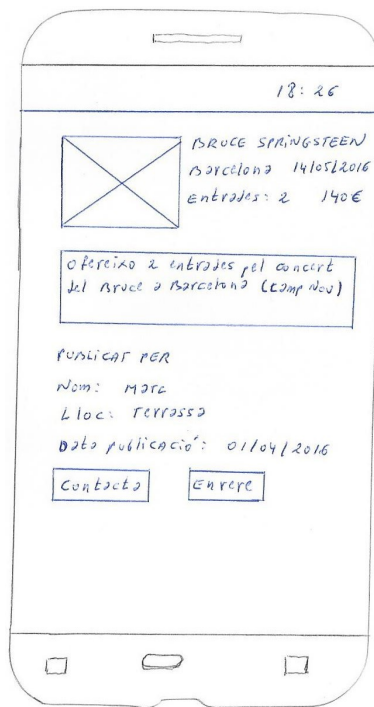 18:26
BRUCE SPRINGSTEEN
Barcelona 14/05/2016
Entrades: 2 140€
Ofereixo 2 entrades pel concert
del Bruce a Barcelona (Camp Nou)
PUBLICAT PER
Nom: Marc
Lloc: Terrassa
Data publicació: 01/04/2016
Contacta
Enrere